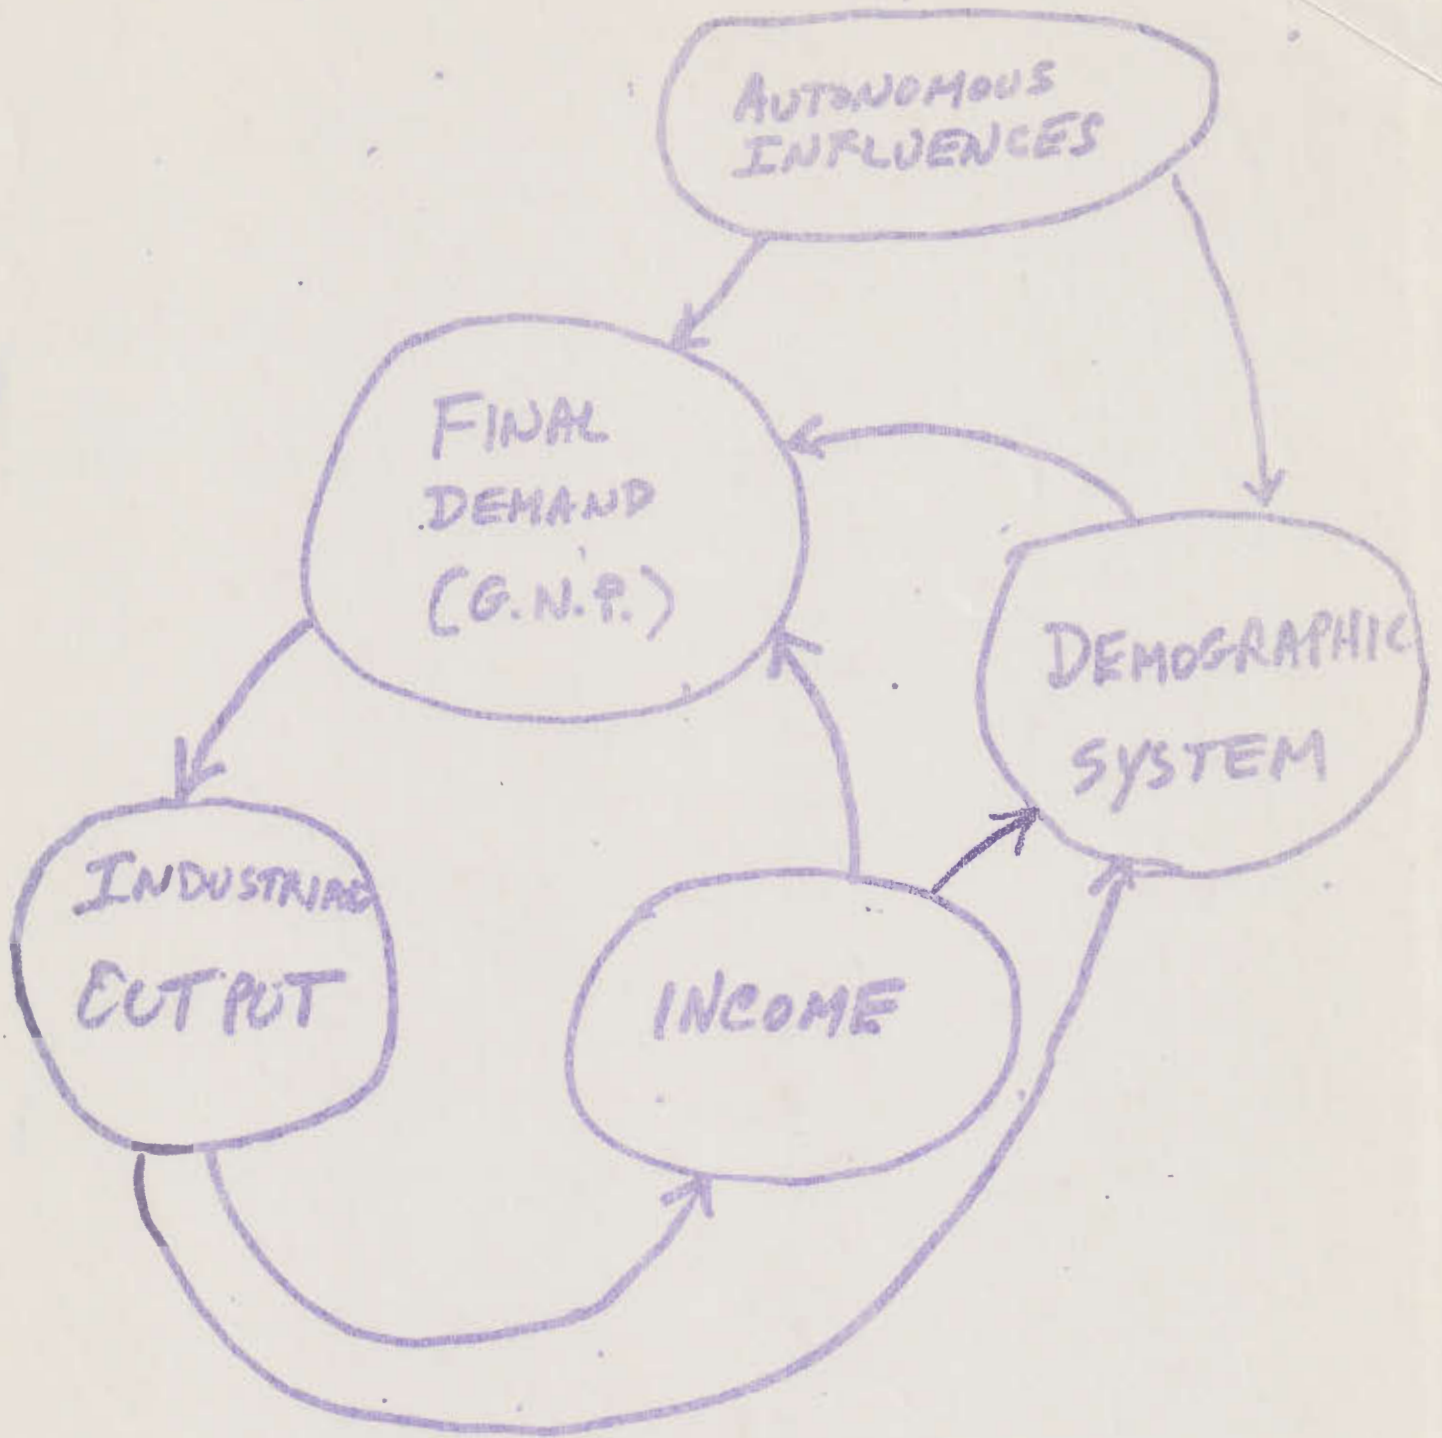 AUTONOMOUS
INFLUENCES
FINAL
DEMAND
(G.N.P.)
DEMOGRAPHIC
SYSTEM
INDUSTRIAL
OUTPUT
INCOME